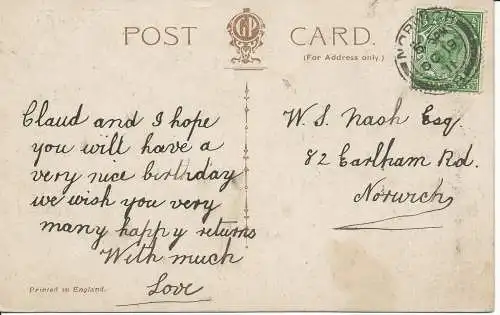 POST CARD.
(For Address only.)
NORWICH
Claud and I hope
you will have a
very nice birthday
we wish you very
many happy returns
With much
Love
W. S. Nash Esq
82 Earlham Rd.
Norwich
Printed in England.